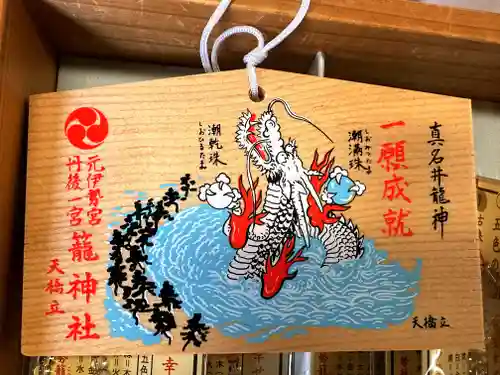 真名井龍神
一願成就
潮満珠
しおみつたま
潮乾珠
しおひるたま
元伊勢宮
丹後一宮
籠神社
天橋立
天橋立